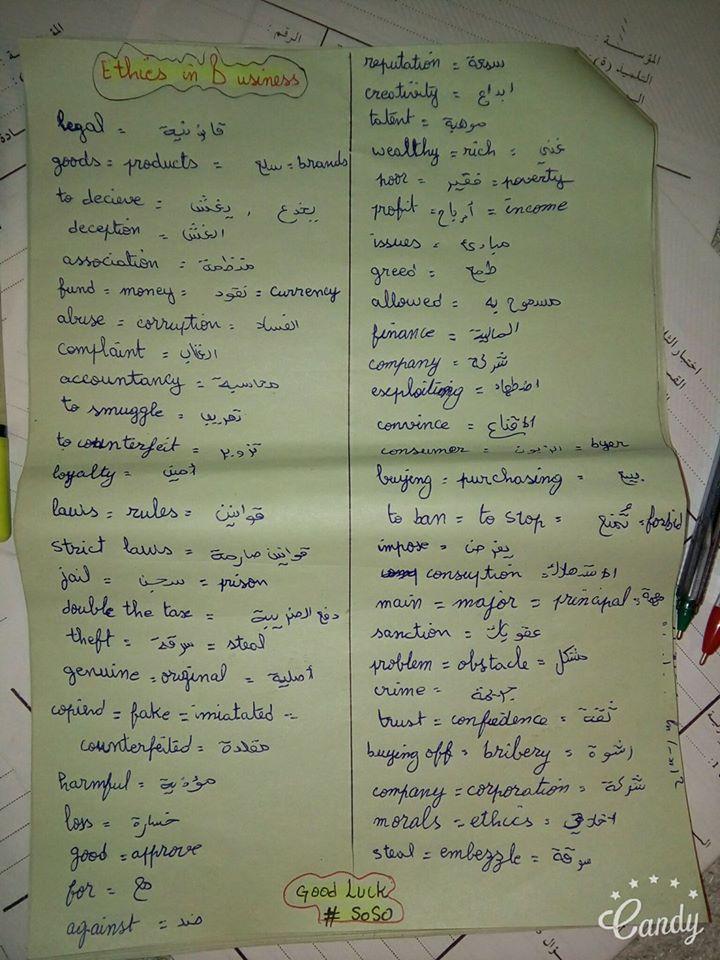 Ethics in Business
legal = قانونية
goods = products = سلع = brands
to decieve = يغش , يخدع
deception = الغش
association = منظمة
fund = money = نقود = currency
abuse = corruption = الفساد
complaint =
accountancy = محاسبة
to smuggle = تهريب
to counterfeit = تزوير
loyalty = أمين
laws = rules = قوانين
strict laws = قوانين صارمة
jail = سجن = prison
double the taxe = دفع الضريبة
theft = سرقة = steal
genuine = original = أصلية
copierd = fake = imiatated =
counterfeited = مقلدة
harmful = مؤذية
loss = خسارة
good = approve
for = مع
against = ضد
reputation = سمعة
creativity = ابداع
talent = موهبة
wealthy = rich = غني
poor = فقير = poverty
profit = أرباح = income
issues = مبادئ
greed = طمع
allowed = مسموح به
finance = المالية
company = شركة
exploiting = اضطهاد
convince = الاقناع
consumer = الزبون = byer
buying = purchasing = بيع
to ban = to stop = تُمنع = forbid
impose = يفرض
consuption = الاستهلاك
main = major = principal = مهمة
sanction = عقوبات
problem = obstacle = مشكل
crime = جريمة
trust = confiedence = ثقة
buying off = bribery = رشوة
company = corporation = شركة
morals = ethics = اخلاق
steal = embezzle = سرقة
Good Luck
# SoSo
Candy
الرقم:
المؤسسة:
التلميذ (ة):